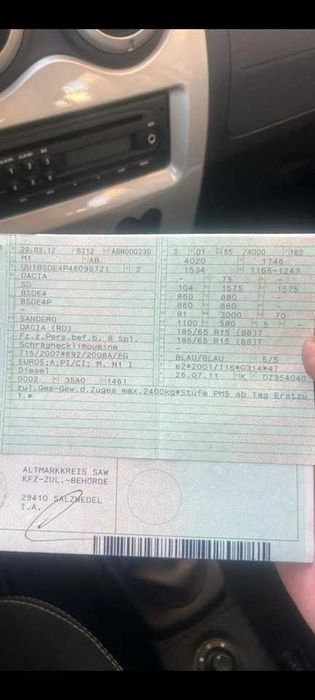 29.03.12 8212 ABN000230 2 01 55 /4000 162
M1 AB 4020 1746
UU1BSDE4P46098721 2 1534 1165-1243
DACIA - 75 - -
SD 104 1575 1575
BSDE4 860 880 -
BSDE4P 860 880 -
- 81 3000 70
SANDERO 1100 580 5 -
DACIA (RO) 185/65 R15 (88)T
Fz.z.Pers.bef.b. 8 Spl. 185/65 R15 (88)T
Schräghecklimousine -
715/2007*692/2008A/EG BLAU/BLAU 5/5
EURO5;A;PI/CI; M, N1 I e2*2001/116*0314*47
Diesel 26.07.11 K DZ354040
0002 35A0 1461
zul.Ges-Gew.d.Zuges max.2400kg*Stufe PM5 ab Tag Erstzu
l.*
ALTMARKKREIS SAW
KFZ-ZUL.-BEHÖRDE
29410 SALZWEDEL
I.A.